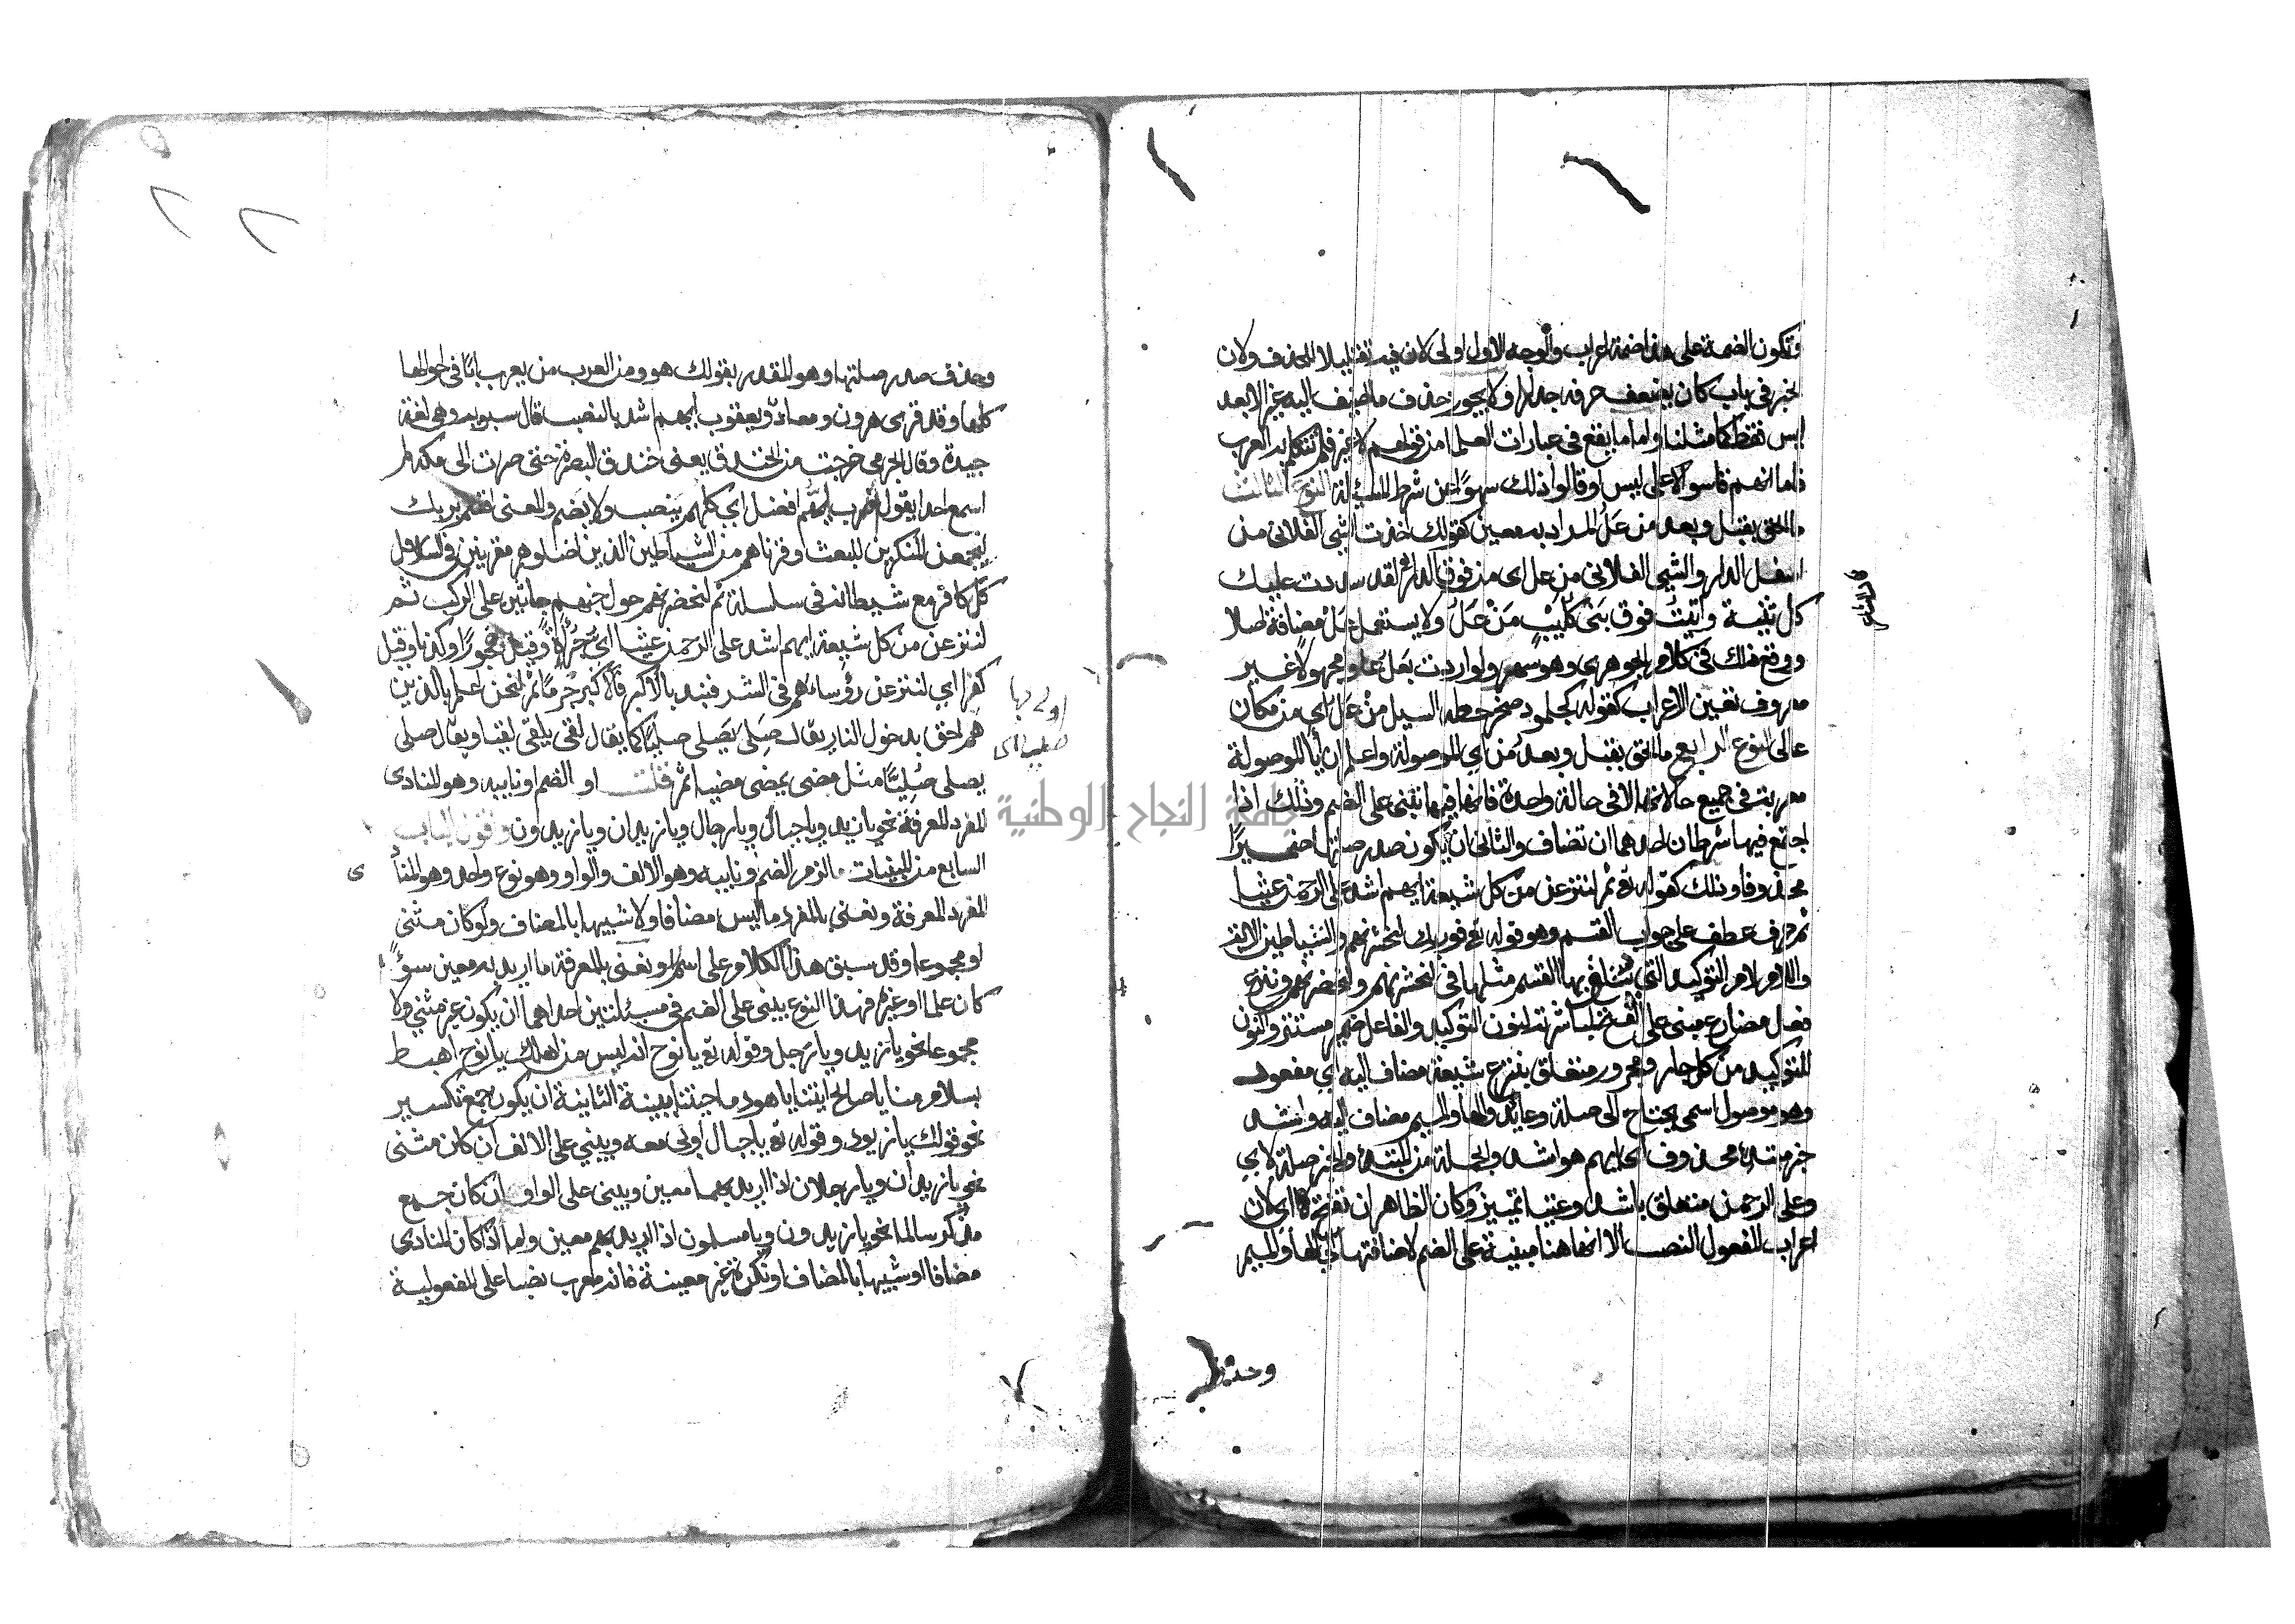 وتكون الضمة على هذا ضمة اعراب والوجه الاول اولى لان فيه تقليلا للحذف ولان
الخبر في باب كان يضعف حذفه جدا ولا يجوز حذف ما اضيف اليه غير الا بعد
ليس فقط كما مثلنا واما ما يقع في عبارات العلما من قولهم لا غير فلم تتكلم به العرب
فاما انهم قاسوا لا على ليس او قالوا ذلك سهوًا عن شرط المسئلة النوع الثالث
ما الحق بقبل وبعد من عَلُ المراد به معين كقولك اخذت الشي الفلاني من
اسفل الدار والشي الفلاني من عل اي من فوق الدار قال لقد سددت عليك
كل ثنية واتيتُ فوق بَنى كُلَيْبٍ مَنْ عَلُ ولا يستعمل عَلُ مضافة اصلا
ووقع ذلك في كلام الجوهري وهو سهو ولو اردت بعَلُ علوا مجهولا غير
معروف تعين الاعراب كقوله كجلمود صخر حطه السيل مِنْ عَلِ اي من مكان
عالى النوع الرابع ما الحق بقبل وبعد من اي الموصولة واعلم ان ايا الموصولة
معربة في جميع حالاتها الا في حالة واحدة فانها فيها تبنى على الضم وذلك اذا
اجتمع فيها شرطان احدهما ان تضاف والثاني ان يكون صدر صلتها ضميرًا
محذوفا وذلك كقوله تع ثم لننزعن من كل شيعة ايهم اشد على الرحمن عتيا
ثم حرف عطف على جواب القسم وهو قوله تع فوربك لنحشرنهم والشياطين الاية
واللام لام التوكيد التي يتلقى بها القسم مثلها في لنحشرنهم ولنحضرنهم وننزع
فعل مضارع مبنى على الفتح لمباشرته لنون التوكيد والفاعل ضمير مستتر والنون
للتوكيد من كل جار ومجرور متعلق بننزع شيعة مضاف اليه اي مفعول
وهو موصول اسمى يحتاج الى صلة وعائد والها والميم مضاف اليه واشد
خبر مبتدا محذوف اي ايهم هو اشد والجملة من المبتدا والخبر صلة لاي
وعلى الرحمن متعلق باشد وعتيا تمييز وكان الظاهر ان تفتح اي لان
اعراب المفعول النصب الا انها هنا مبنية على الضم لاضافتها الى الها والميم
وحذف
وحذف صدر صلتها وهو المقدر بقولك هو ومن العرب من يعرب ايًا في احوالها
كلها وقد قرى هرون ومعاذ ويعقوب ايهم اشد بالنصب قال سيبويه وهي لغة
جيدة وقال الجرمي خرجت من الخندق يعنى خندق البصرة حتى صرت الى مكة لم
اسمع احدا يقول اضرب ايهُّم افضل اي كلهم يَنصب ولا يَضم والمعنى اقسم بربك
لنجمعن المنكرين للبعث وقرناهم من الشياطين الذين اضلوهم مقرنين في السلاسل
كل كافر مع شيطانه في سلسلة ثم لنحضرنهم حول جهنم جاثين على الركب ثم
لننزعن من كل شيعة ايهم اشد على الرحمن عتيا اي جُرْأةً وقيل فجورًا وكذبا وقيل
كفرا اي لننزعن رؤساءهم في الشر فنبدا بالاكبر فالاكبر جُرمًا ثم لنحن اعلم بالذين
هم احق بدخول النار يقال صَلِىَ يَصلى صليًّا كما يقال لقى يلقى لقيا ويقال صلى
اولى بها
صليا اى
يصلى صُلِيًّا مثل مضى يمضى مضيا ثم قلت او الضم او نايبه وهو المنادى
المفرد المعرفة نحو يا زيد ويا جبال ويا رجال ويا زيدان ويا زيدون واقول الباب
السابع من المبنيات ما لزم الضم او نايبه وهو الالف والواو وهو نوع واحد وهو المنا
ى
المفرد المعرفة ونعني بالمفرد ما ليس مضافا ولا شبيها بالمضاف ولو كان مثنى
او مجموعا وقد سبق هذا الكلام على اسم لا ونعنى بالمعرفة ما اريد به معين سوًا
كان علما او غيره فهذا النوع يبنى على الضم في مسئلتين احداهما ان يكون غير مثنى ولا
مجموعا نحو يا زيد ويا رَجل وقوله تع يا نوح انه ليس من اهلك يا نوح اهبط
بسلام منا يا صالح ايتنا يا هود ما جيتنا ببينة الثانية ان يكون جمع تكسير
نحو قولك يا زيود وقوله تع يا جبال اوبي معه ويبني على الالف ان كان مثنى
نحو يا زيدان ويا رجلان اذا اريد بهما معين ويبنى على الواو ان كان جمع
مذكر سالما نحو يا زيدون ويا مسلمون اذا اريد بهم معين واما اذا كان المنادى
مضافا او شبيها بالمضاف او نكرة غير معينة فانه معرب نصبا على المفعولية
جامعة النجاح الوطنية